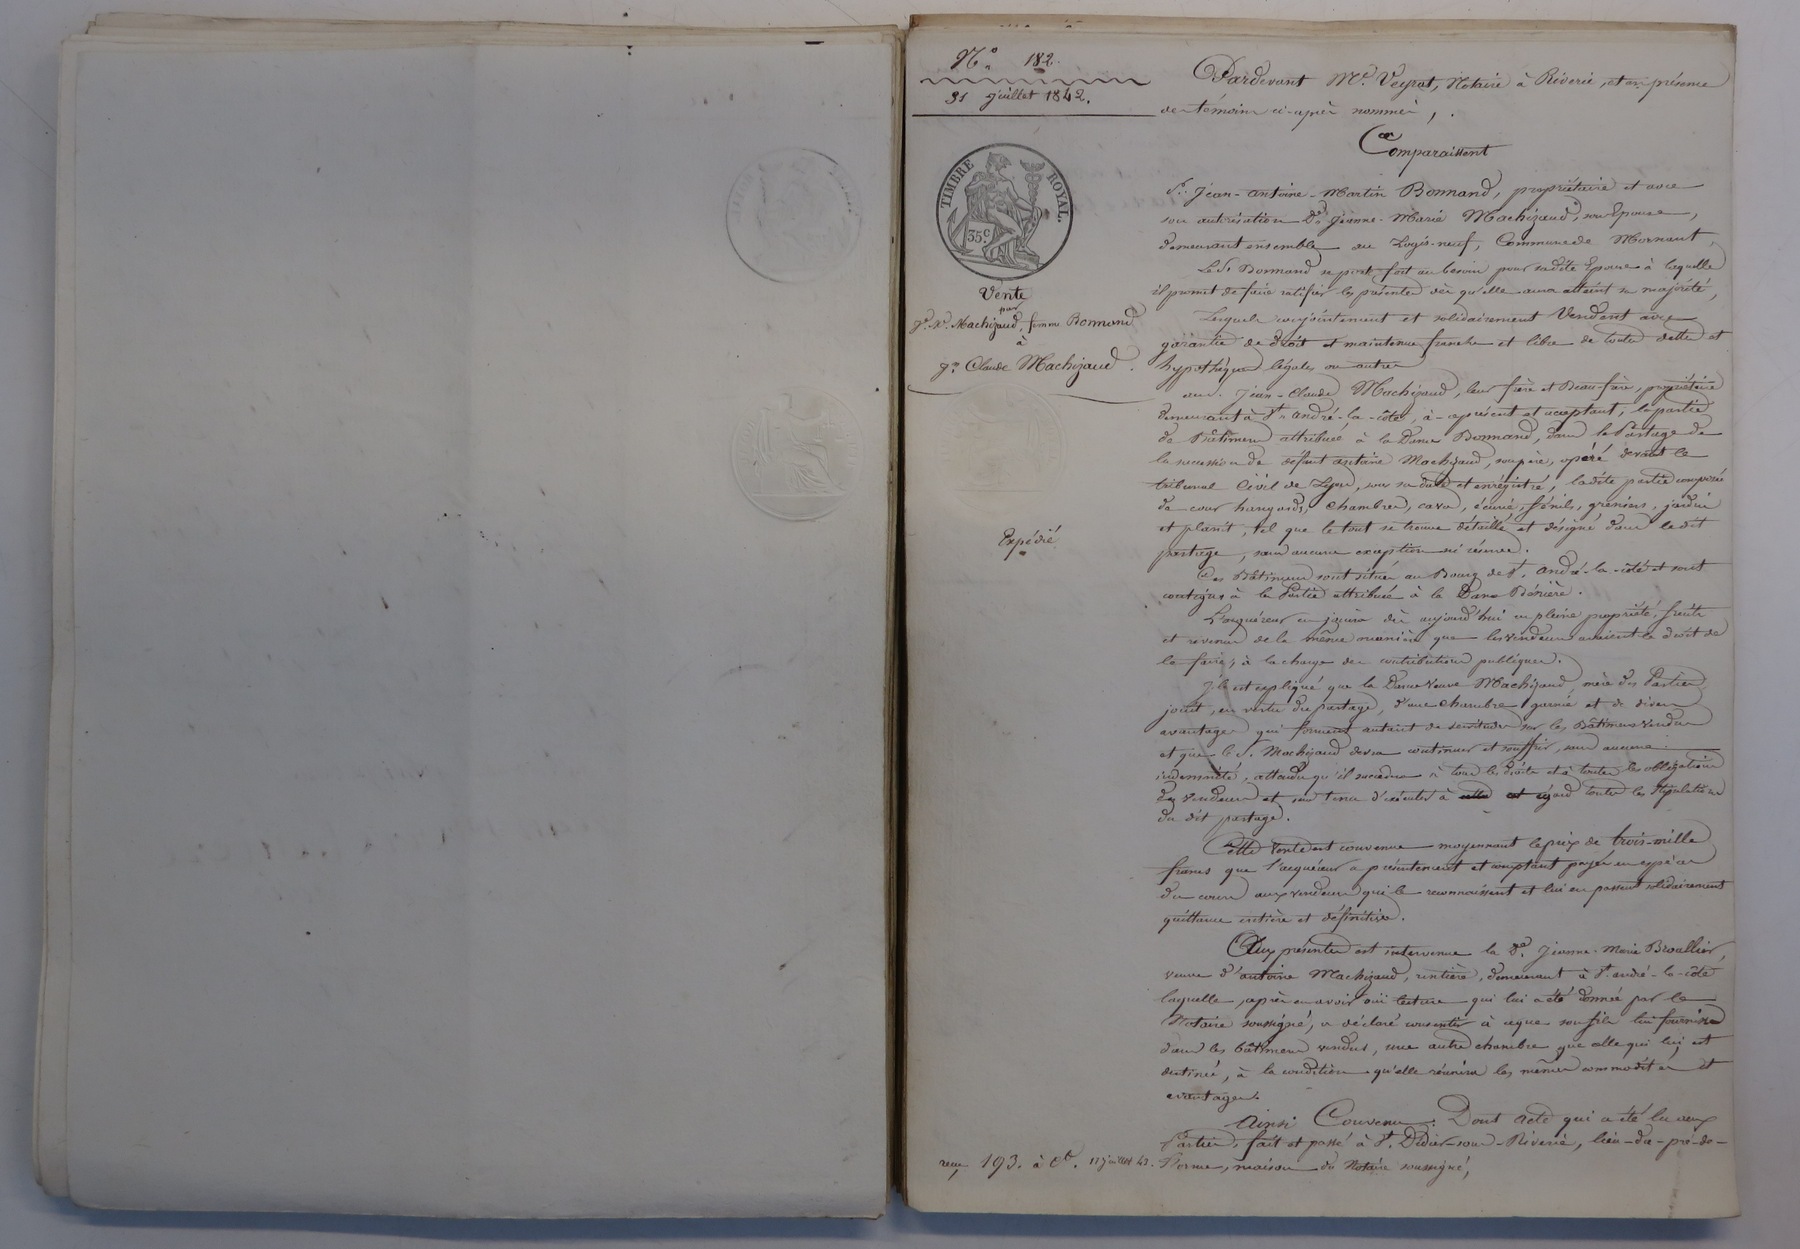 N.° 182.
31 juillet 1842.
TIMBRE ROYAL.
35c
Vente
par
Je. Me. Machizaud, femme Bonnand
à
Jn. Claude Machizaud.
Expédié
Pardevant Me. Veyrat, Notaire à Riverie, et en présence
des témoins ci-après nommés,
Comparaissent
Sr. Jean-Antoine-Martin Bonnand, propriétaire et avec
son autorisation De. Jeanne-Marie Machizaud, son Epouse,
demeurant ensemble au Logis-neuf, Commune de Mornant,
Le Sr. Bonnand se porte fort au besoin pour sa dite Epouse à laquelle
il promet de faire ratifier les présentes dès qu'elle aura atteint sa majorité,
Lesquels conjointement et solidairement Vendent avec
garantie de droit et maintenue franche et libre de toutes dettes et
hypothèques légales ou autres
au Jean-Claude Machizaud, leur frère et Beau-frère, propriétaire
demeurant à St. André-la-côte, à ce présent et acceptant, la partie
de Bâtimens attribuée à la Dame Bonnand, dans le Partage de
la succession de défunt Antoine Machizaud, son père, opéré devant le
tribunal Civil de Lyon, sous sa date et enrégistré, ladite partie composée
de cour, hangards, chambres, cave, écurie, fénils, greniers, jardin
et plansit, tel que le tout se trouve détaillé et désigné dans le dit
partage, sans aucune exception ni réserve.
Ces Bâtimens sont situés au Bourg de St. André-la-côte et sont
contigus à la Partie attribuée à la Dame Bénière.
L'acquéreur en jouira dès aujourd'hui en pleine propriété, fruits
et revenus de la même manière que les vendeurs avaient le droit de
le faire, à la charge des contributions publiques.
Il est expliqué que la Dame Veuve Machizaud, mère des Parties
jouit, en vertu du partage, d'une chambre garnie et de divers
avantages qui forment autant de servitudes sur les Bâtimens vendus
et que le Sr. Machizaud devra continuer et souffrir, sans aucune
indemnité, attendu qu'il succédera à tous les droits et à toutes les obligations
des Vendeurs et sera tenu d'exécuter à cet égard toutes les stipulations
du dit partage.
Cette vente est convenue moyennant le prix de trois-mille
francs que l'acquéreur a présentement et comptant payés en espèces
du cours aux vendeurs qui le reconnaissent et lui en passent solidairement
quittance entière et définitive.
Aux présentes est intervenue la De. Jeanne-Marie Brallier,
veuve d'antoine Machizaud, rentière, demeurant à St. andré-la-côte
laquelle, après en avoir ouï lecture qui lui a été donnée par le
Notaire soussigné, a déclaré consentir à ce que son fils lui fournisse
dans les bâtimens vendus, une autre chambre que celle qui lui est
destinée, à la condition qu'elle réunira les mêmes commodités et
avantages.
Ainsi Convenu. Dont acte qui a été lu aux
Parties, fait et passé à St. Didier-sous-Riverie, lieu-du-pré-de-
Lorme, maison du Notaire soussigné,
reçu 193. à Ct. 17 juillet 43.